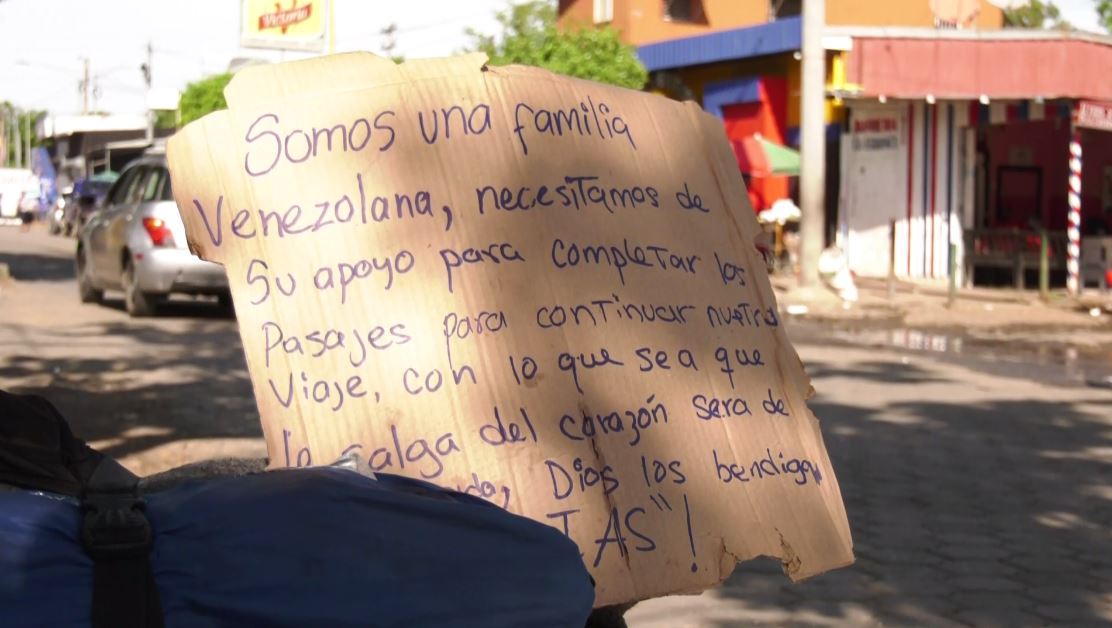 Victoria
Somos una familia
Venezolana, necesitamos de
Su apoyo para completar los
Pasajes para continuar nuetro
Viaje, con lo que sea que
le salga del corazón sera de
Dios los bendiga
IAS"!